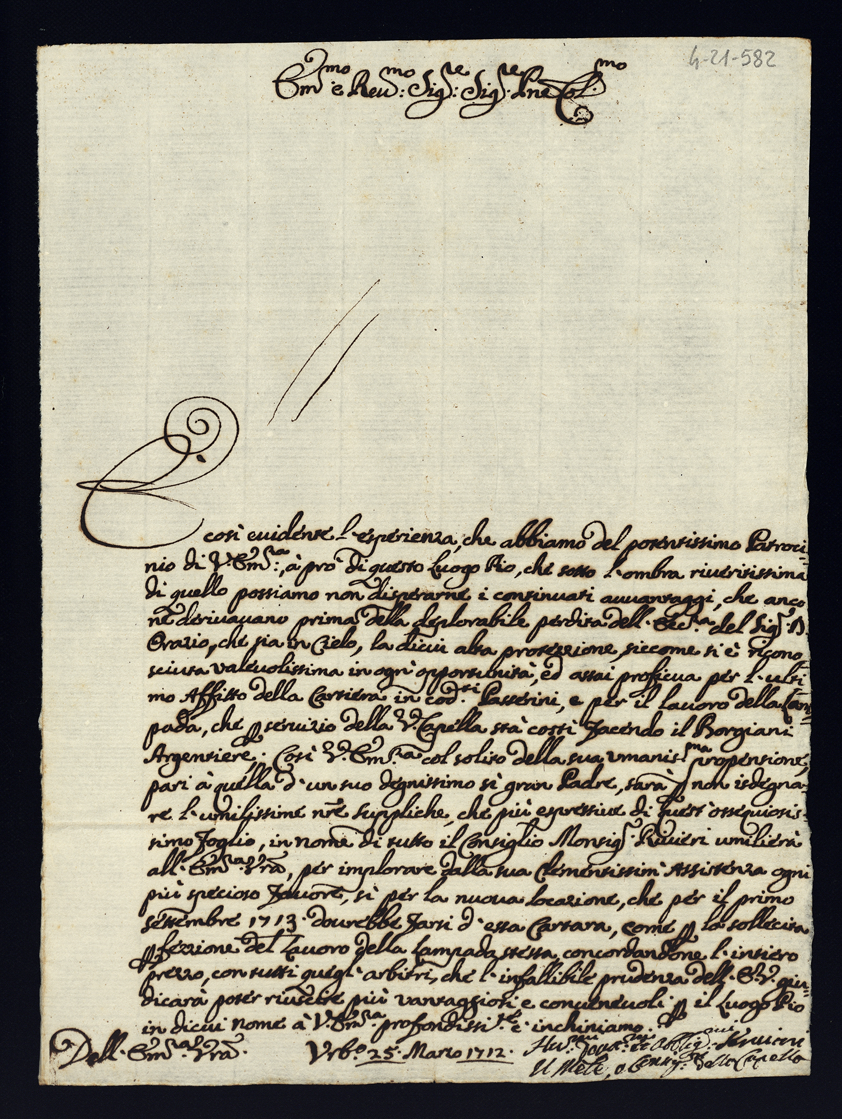 4-21-582
Em.mo e Reu.mo Sig.re Sig.re Pne Col.mo
È così euidente l'esperienza, che abbiamo del potentissimo Patroci-
nio di V. Em.za, à prò di questo Luogo Pio, che sotto l'ombra riueritissima
di quello possiamo non disperarne i continuati auuantaggi, che anco
ne deriuauano prima della deplorabile perdita dell' Ecc.za del Sig. D.
Orazio, che sia in Cielo, la dicui alta protezzione, siccome si è ricono-
sciuta valeuolissima in ogni opportunità, ed assai proficua per l'ulti-
mo Affitto della Cartiera in cod.ti Passerini, e per il lauoro della Lam-
pada, che p seruizio della V. Capella stà costì facendo il Borgiani
Argentiere. Così V. Em.za col solito della sua vmaniss.ma propensione,
pari à quella d'un suo degnissimo sì gran Padre, sarà p non isdegna-
re l'umilissime nre suppliche, che più espressiue di quest' ossequiosis-
simo foglio, in nome di tutto il Consiglio Monsig. Riuieri umilierà
all' Em.za Vra, per implorare dalla sua Clementissim' Assistenza ogni
più specioso fauore, sì per la nuoua locazione, che per il primo
settembre 1713. dourebbe farsi d'essa Cartara, come p la sollecita
pfezzione del lauoro della lampada stessa, concordandone l'intiero
prezzo, con tutti quegl' arbitri, che l'infallibile prudenza dell' E. V. giu-
dicarà poter riuscire più vantaggiosi e conueneuoli p il Luogo Pio
in dicui nome à V. Em.za profondissi.te c'inchiniamo.
Dell' Em.za Vra. Vrb.o 25. Marzo 1712. Hu.mi Deu.mi et Obblig.mi Seruitori
della Capella